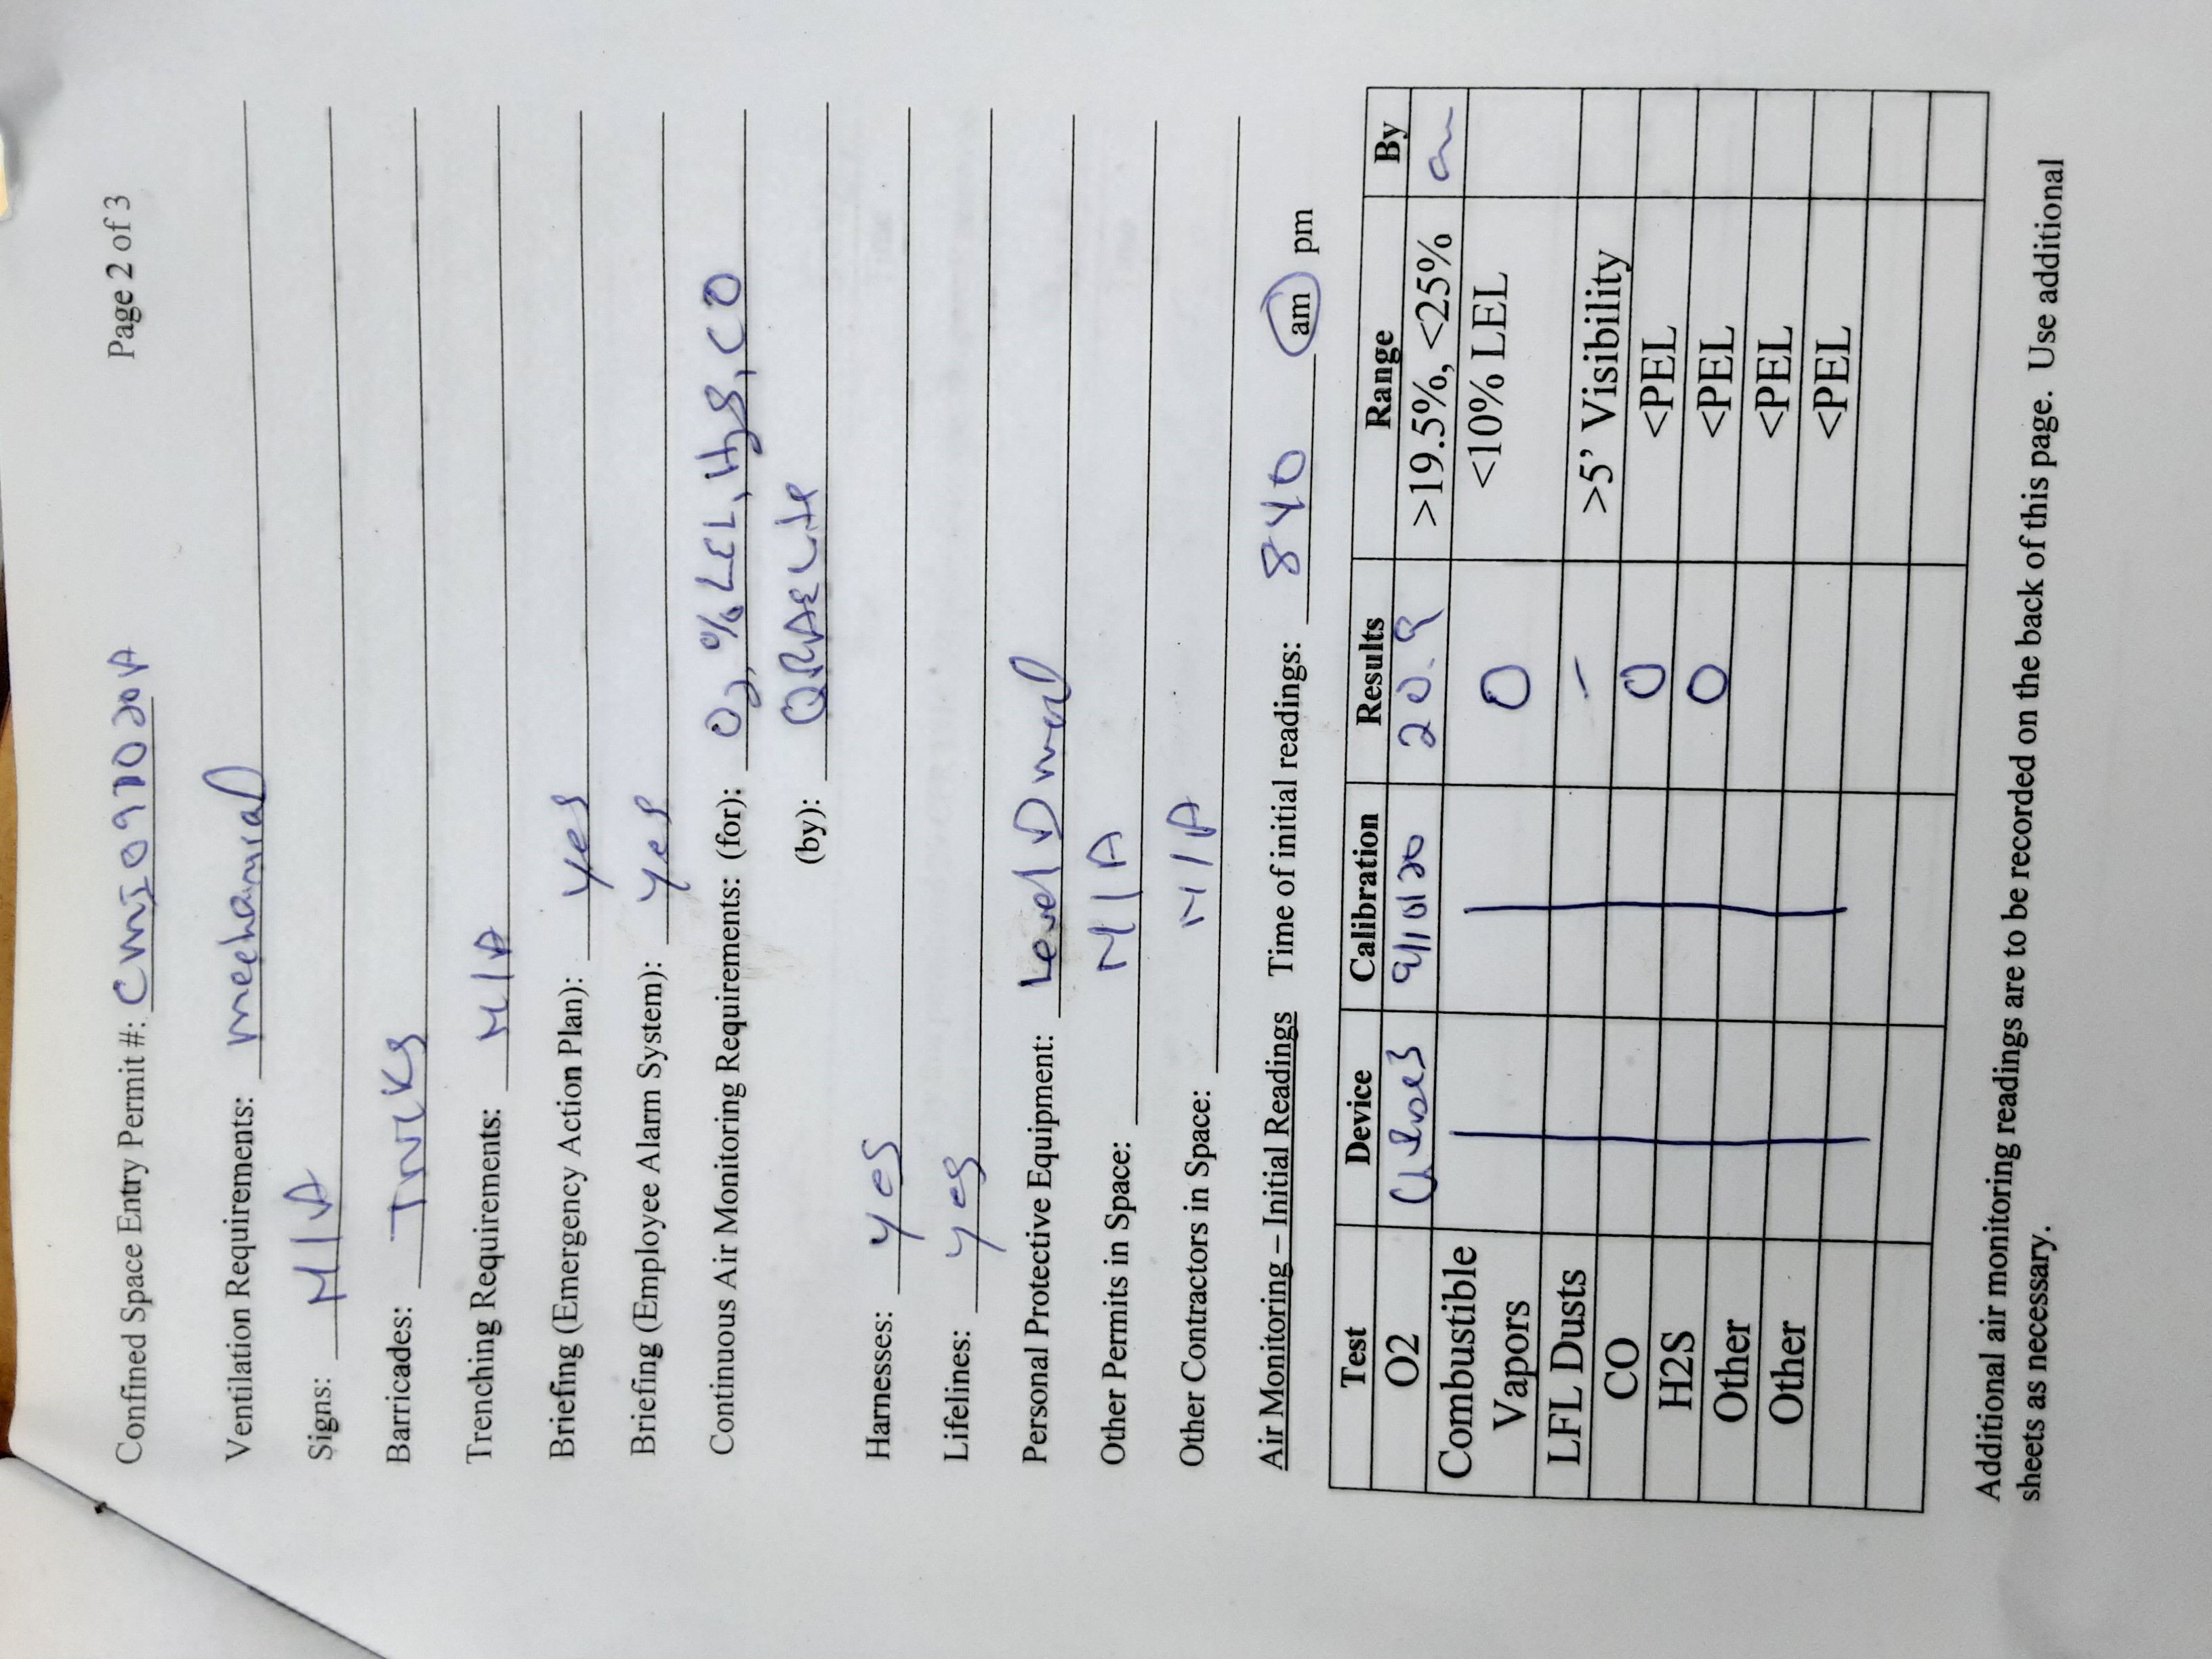 Page 2 of 3
Confined Space Entry Permit #: CWJ091020A
Ventilation Requirements: mechanical
Signs: N/A
Barricades: Trucks
Trenching Requirements: N/A
Briefing (Emergency Action Plan): yes
Briefing (Employee Alarm System): yes
Continuous Air Monitoring Requirements: (for): O2, % LEL, H2S, CO
(by): QRAE Lite
Harnesses: yes
Lifelines: yes
Personal Protective Equipment: Level D mod
Other Permits in Space: N/A
Other Contractors in Space: N/A
Air Monitoring – Initial Readings Time of initial readings: 840 am pm
Test Device Calibration Results Range By
O2 9/10/20 20.9 >19.5%, <25%
Combustible Vapors 0 <10% LEL
LFL Dusts - >5' Visibility
CO 0 <PEL
H2S 0 <PEL
Other <PEL
Other <PEL
Additional air monitoring readings are to be recorded on the back of this page. Use additional
sheets as necessary.